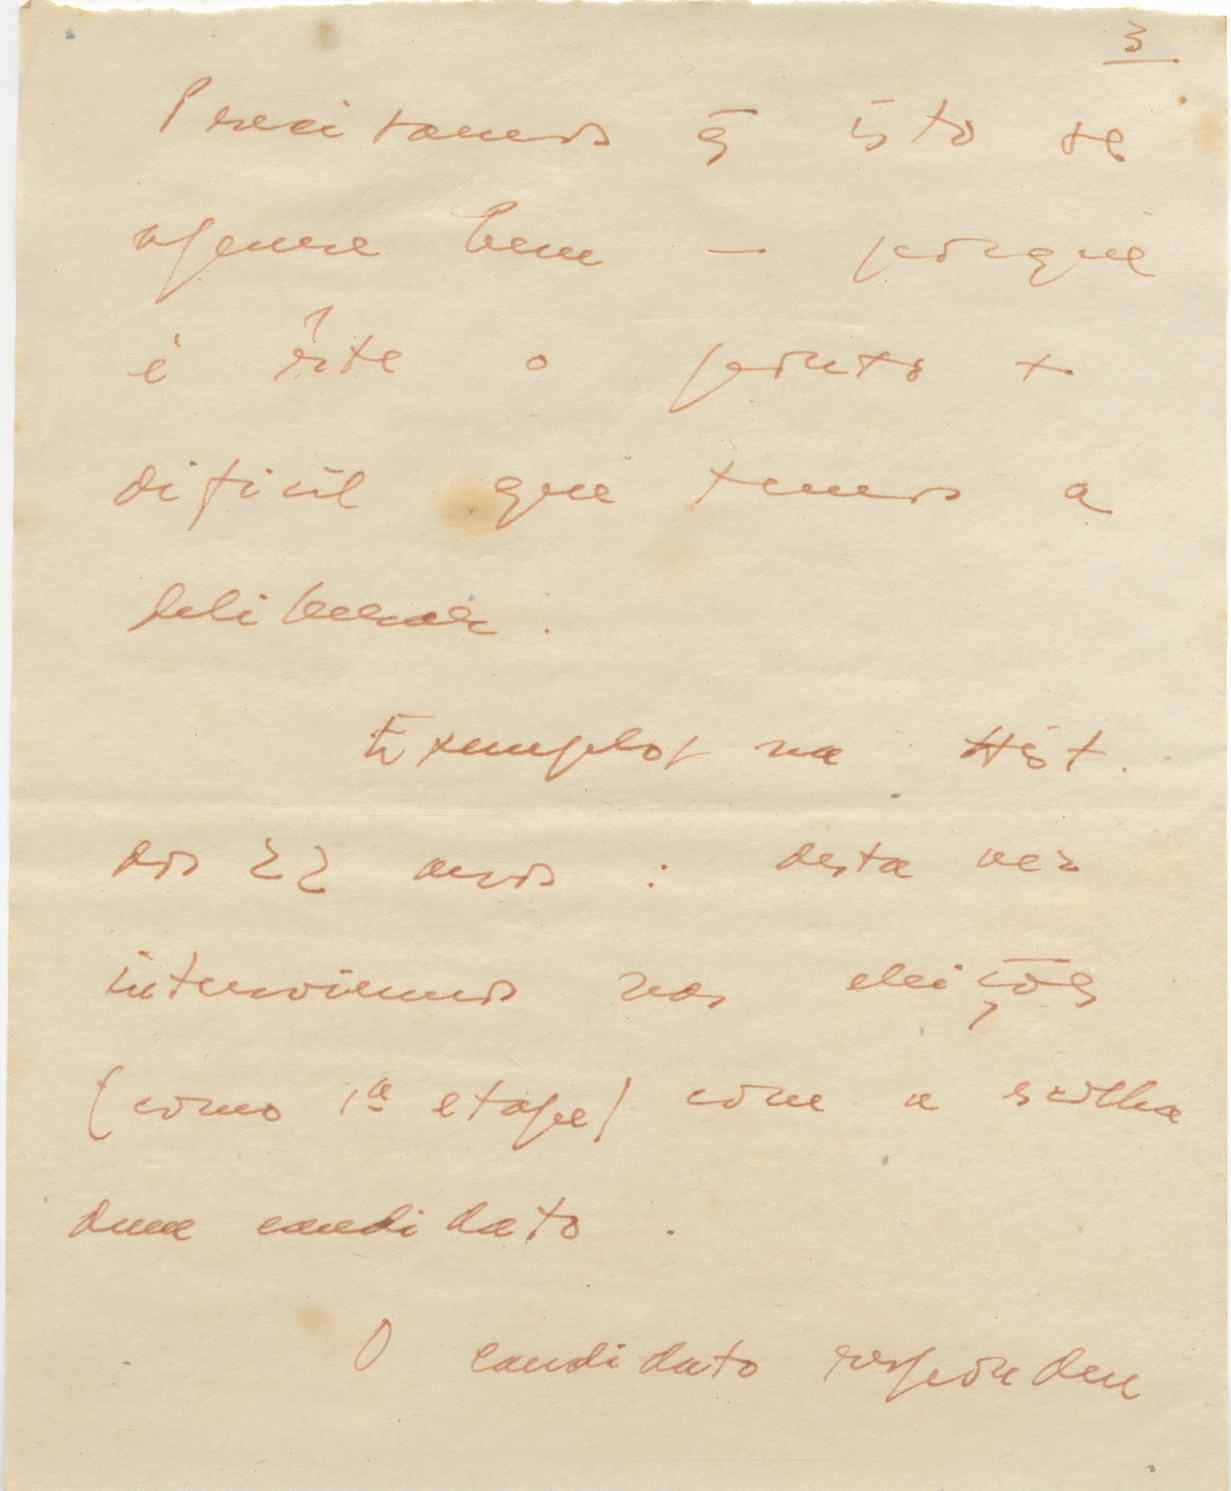 3
Precisamos q̄ isto se
apure bem — porque
é êste o ponto +
dificil que temos a
deliberar.
Exemplos na Hist.
dos 22 anos : desta vez
interviemos nas eleições
(como 1ª etape) com a escolha
dum candidato.
O candidato respondeu